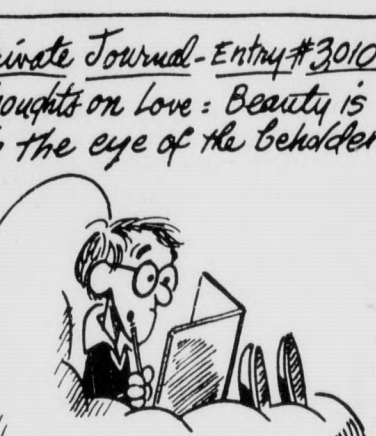 ivate Journal - Entry #3,010
oughts on Love : Beauty is
the eye of the beholder